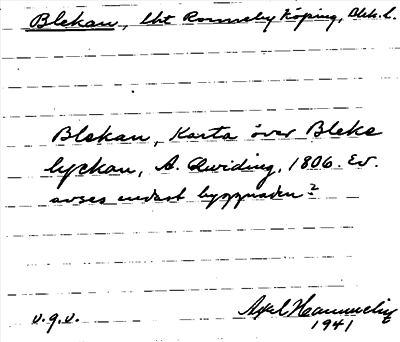 Blekan, lht Ronneby Köping, Blek. l.
Blekan, Karta över Bleke
lyckan, A. Qwiding, 1806. Ev.
avses endast byggnaden?
v.g.v.
Axel
1941